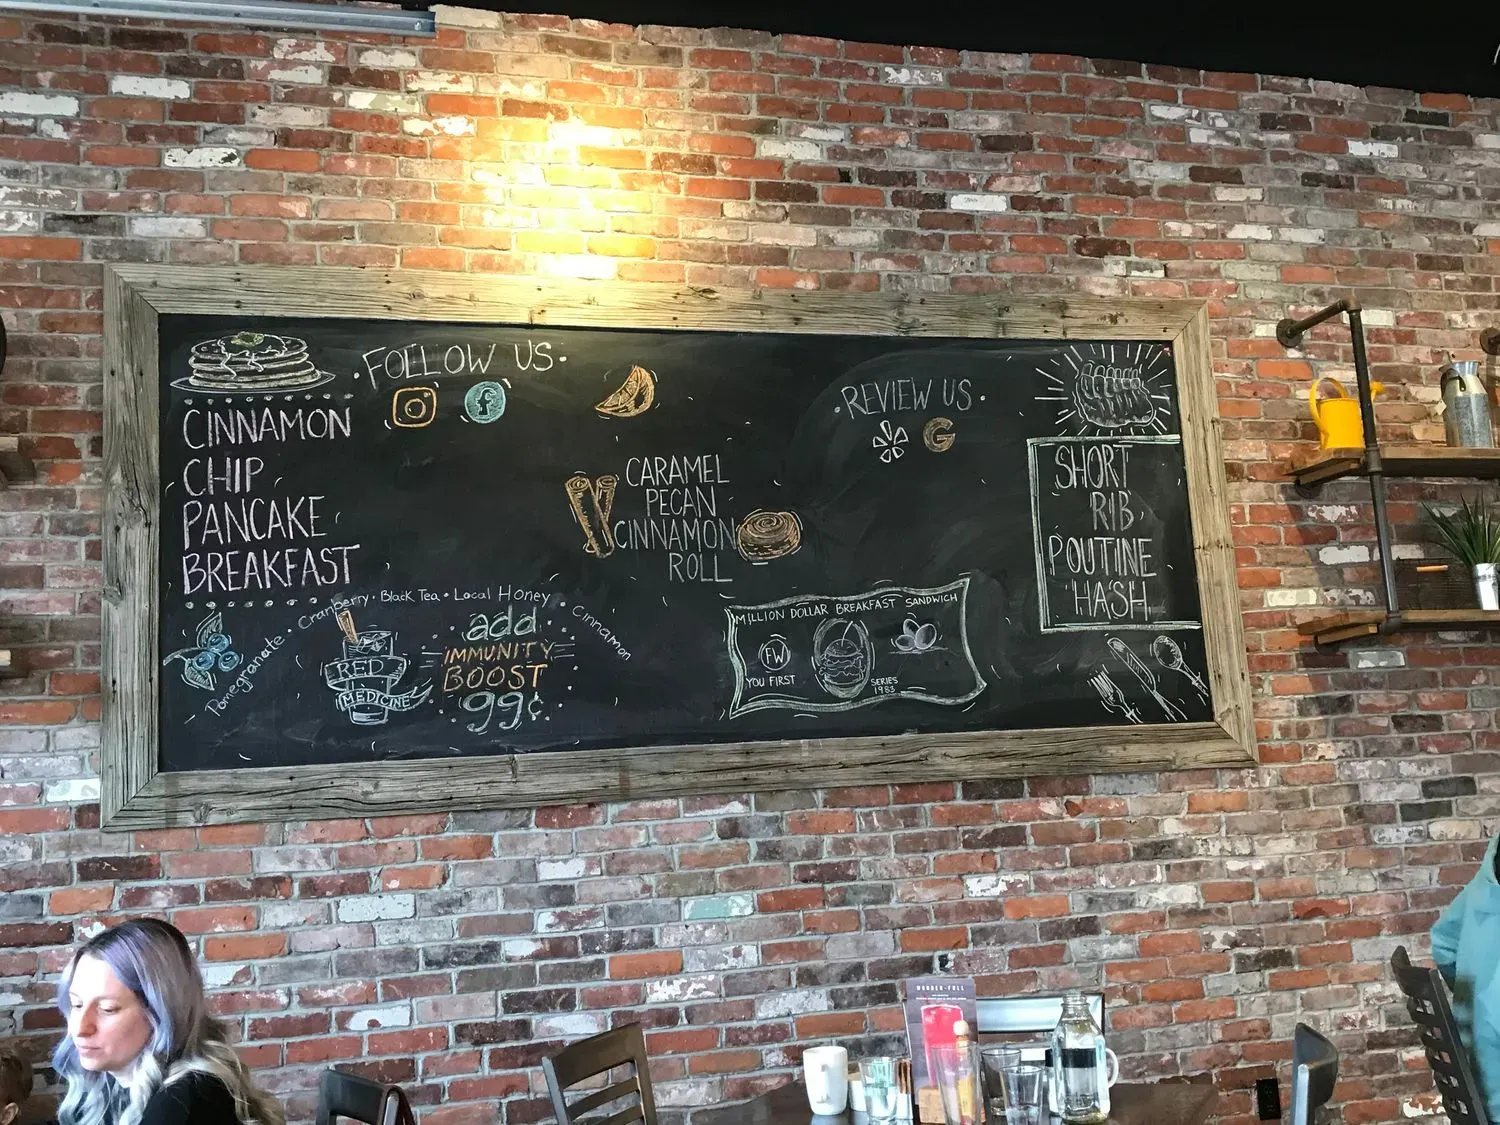 FOLLOW US
CINNAMON
CHIP
PANCAKE
BREAKFAST
REVIEW US
G
CARAMEL
PECAN
CINNAMON
ROLL
SHORT
RIB
POUTINE
HASH
Pomegranate • Cranberry • Black Tea • Local Honey • Cinnamon
RED
MEDICINE
add
IMMUNITY
BOOST
99¢
MILLION DOLLAR BREAKFAST SANDWICH
FW
YOU FIRST
SERIES
1983